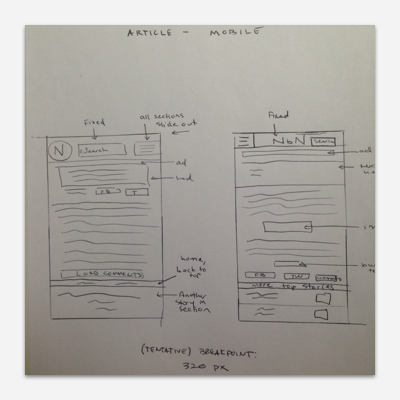 ARTICLE - MOBILE
Fixed
all sections
slide out
N
Search
ad
hed
FB
T
LOAD COMMENTS
home,
back to
top
Another
story in
section
Fixed
NbN
Search
FB
TW
more top stories
(TENTATIVE) BREAKPOINT:
320 PX